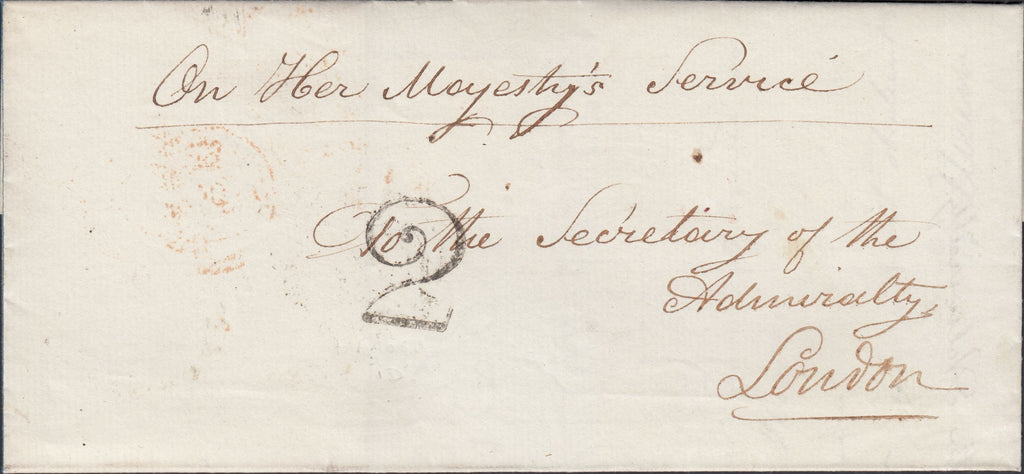 On Her Majesty's Service
2
To the Secretary of the
Admiralty
London